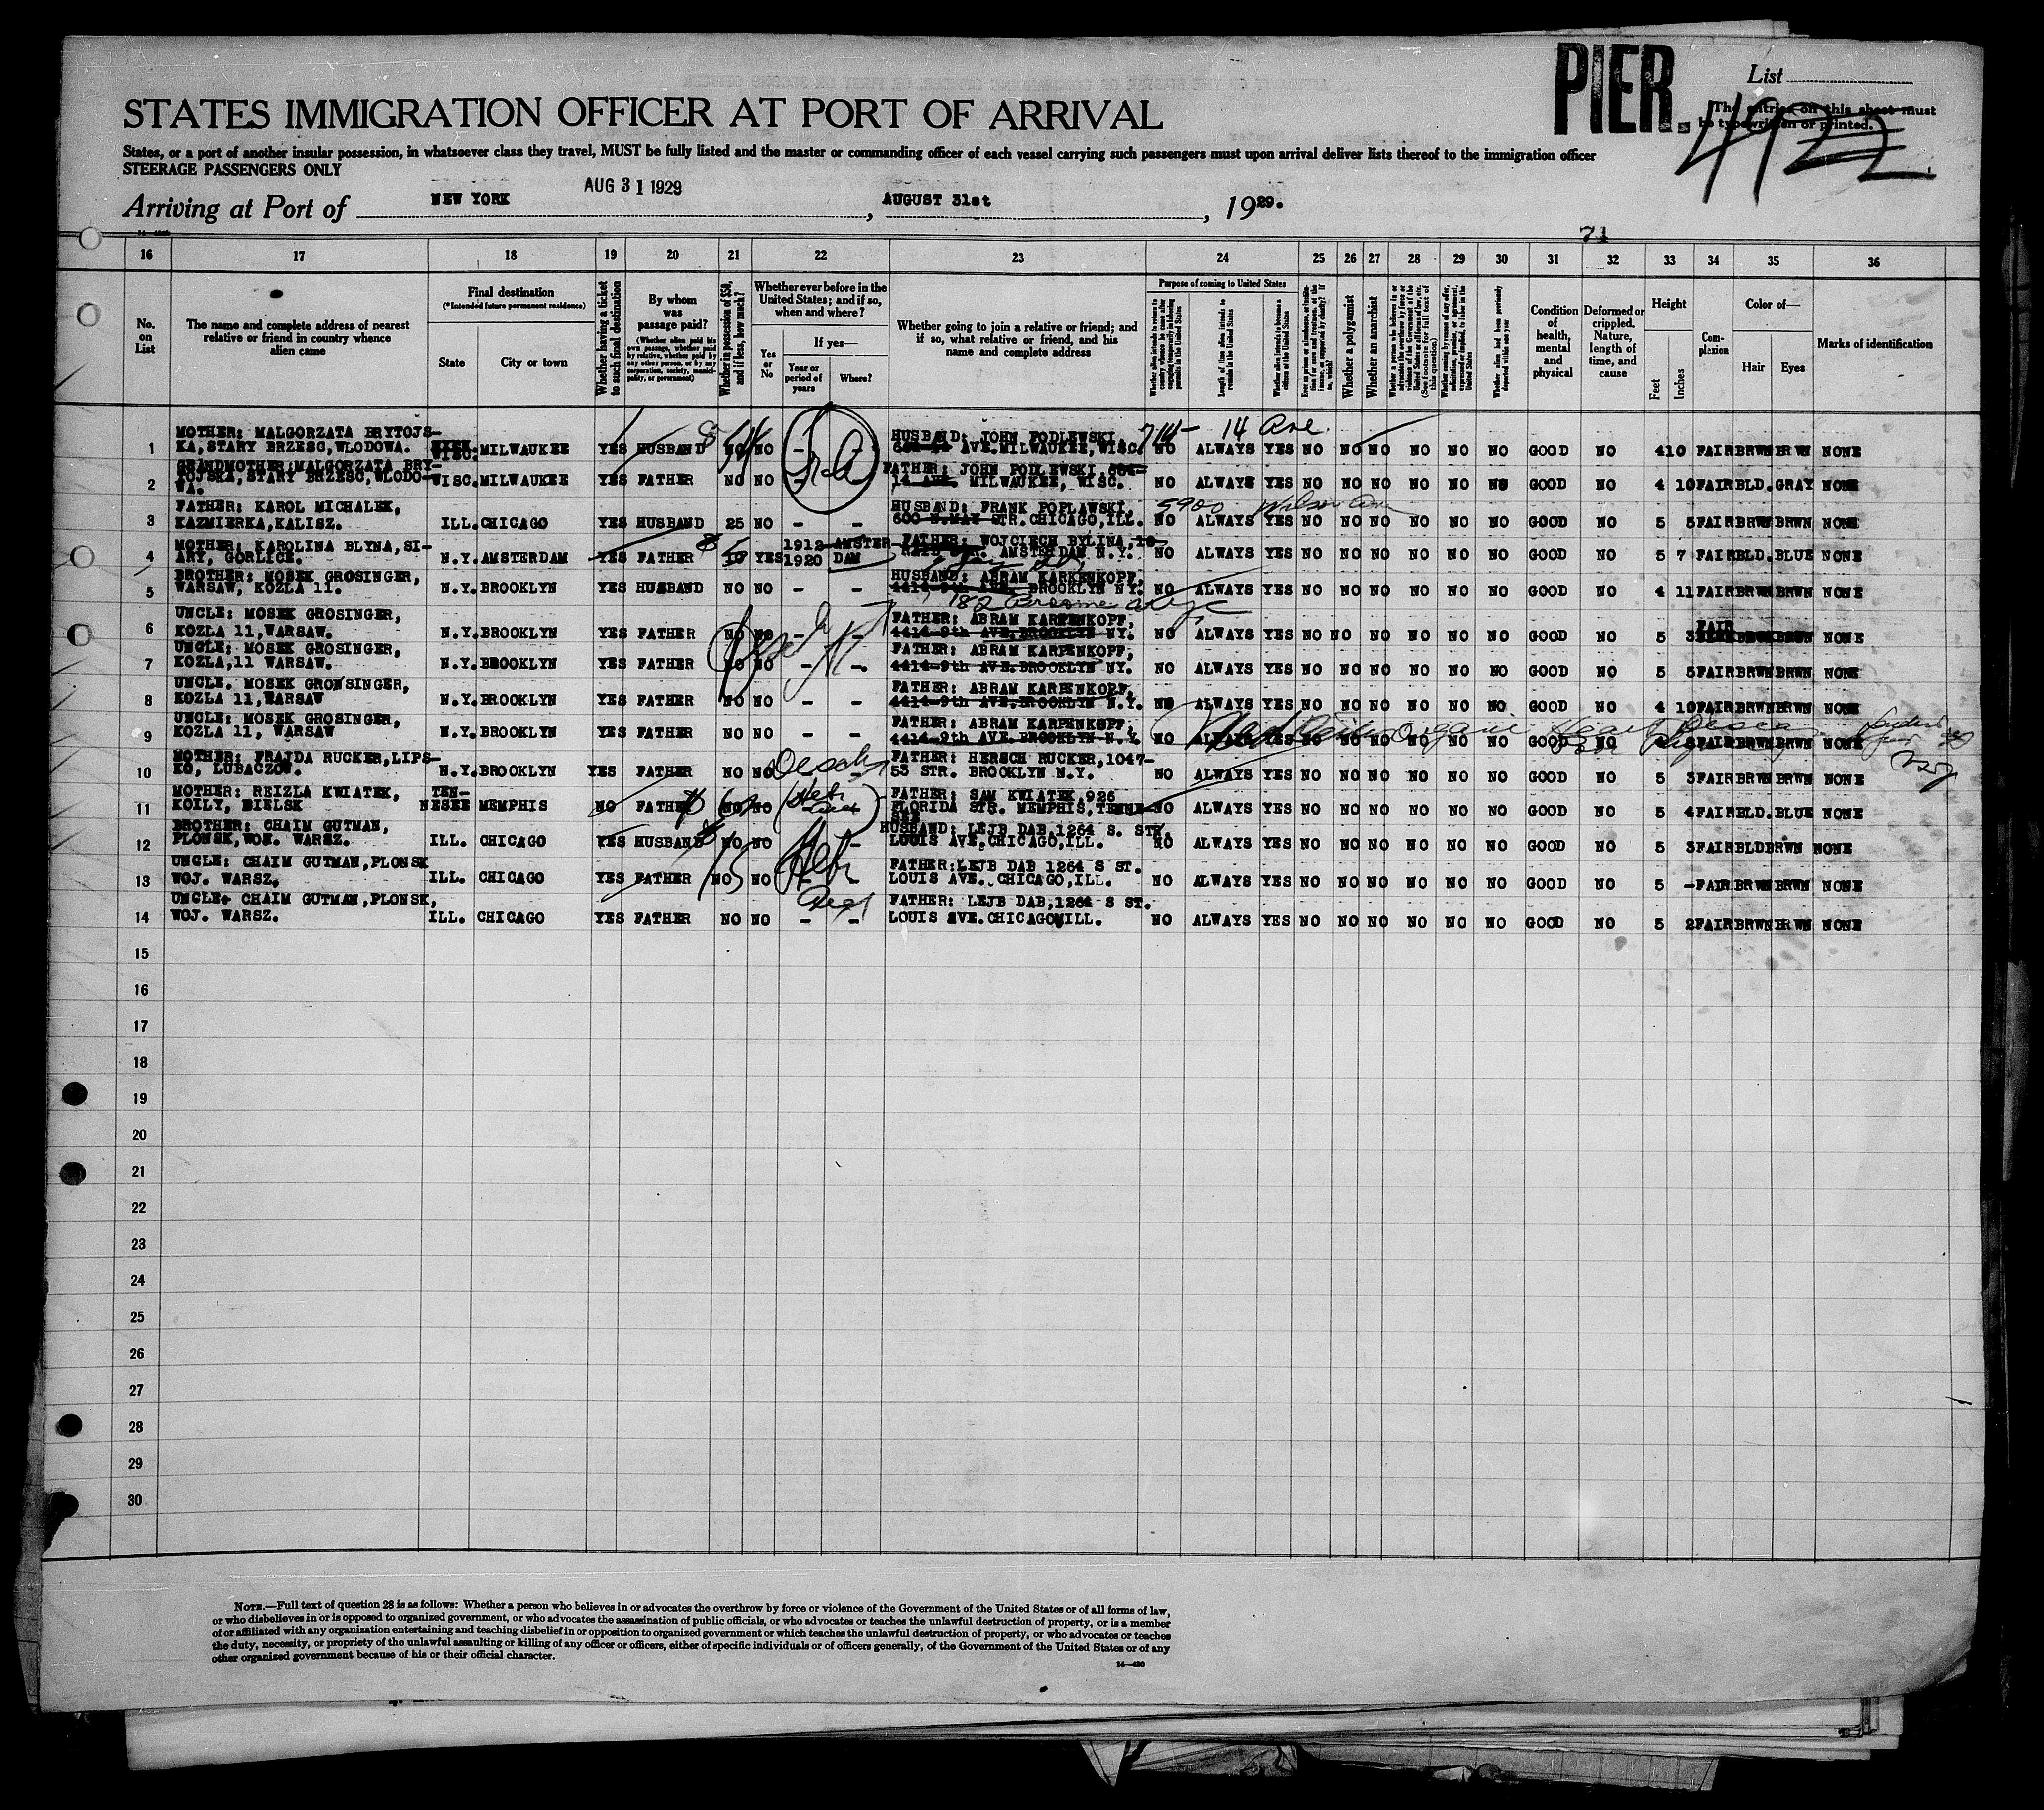 PIER.
List
4922
The entries on this sheet must
be typewritten or printed.
STATES IMMIGRATION OFFICER AT PORT OF ARRIVAL
States, or a port of another insular possession, in whatsoever class they travel, MUST be fully listed and the master or commanding officer of each vessel carrying such passengers must upon arrival deliver lists thereof to the immigration officer
STEERAGE PASSENGERS ONLY
AUG 31 1929
Arriving at Port of NEW YORK, AUGUST 31st, 1929.
71
16 17 18 19 20 21 22 23 24 25 26 27 28 29 30 31 32 33 34 35 36
No. on List
The name and complete address of nearest relative or friend in country whence alien came
Final destination
(*Intended future permanent residence)
State
City or town
Whether having a ticket to such final destination
By whom was passage paid?
(Whether alien paid his own passage, whether paid by relative, whether paid by any other person, or by any corporation, society, municipality, or government)
Whether in possession of $50, and if less, how much?
Whether ever before in the United States; and if so, when and where?
Yes or No
If yes—
Year or period of years
Where?
Whether going to join a relative or friend; and if so, what relative or friend, and his name and complete address
Purpose of coming to United States
Length of time alien intends to remain in the United States
Whether alien intends to become a citizen of the United States
Whether a polygamist
Whether an anarchist
Whether alien had been previously deported within one year
Condition of health, mental and physical
Deformed or crippled. Nature, length of time, and cause
Height
Feet
Inches
Complexion
Color of—
Hair
Eyes
Marks of identification
714- 14 Ave
1 MOTHER: MALGORZATA BRYTOJS-
KA, STARY BRZESC, WLODOWA. WISC. MILWAUKEE YES HUSBAND NO NO - - HUSBAND: JOHN PODLEWSKI,
AVE. MILWAUKEE, WISC. NO ALWAYS YES NO NO NO NO NO NO GOOD NO 4 10 FAIR BRWN BRWN NONE
2 GRANDMOTHER: MALGORZATA BRY-
TOJSKA, STARY BRZESC, WLODO-
WA. WISC. MILWAUKEE YES FATHER NO NO - FATHER: JOHN PODLEWSKI,
14 AVE. MILWAUKEE, WISC. NO ALWAYS YES NO NO NO NO NO NO GOOD NO 4 10 FAIR BLD. GRAY NONE
5900 Wilson
3 FATHER: KAROL MICHALEK,
KAZMIERKA, KALISZ. ILL. CHICAGO YES HUSBAND 25 NO - - HUSBAND: FRANK POPLAWSKI,
600 N.MAY STR. CHICAGO, ILL. NO ALWAYS YES NO NO NO NO NO NO GOOD NO 5 5 FAIR BRWN BRWN NONE
4 MOTHER: KAROLINA BLYNA, SI-
ARY, GORLICE. N.Y. AMSTERDAM YES FATHER 10 YES 1912 1920 AMSTERDAM FATHER: WOJCIECH BYLINA,
AMSTERDAM N.Y. NO ALWAYS YES NO NO NO NO NO NO GOOD NO 5 7 FAIR BLD. BLUE NONE
5 BROTHER: MOSEK GROSINGER,
WARSAW, KOZLA 11. N.Y. BROOKLYN YES HUSBAND NO NO - - HUSBAND: ABRAM KARKENKOPF,
4414-9th AVE. BROOKLYN NY. NO ALWAYS YES NO NO NO NO NO NO GOOD NO 4 11 FAIR BRWN BRWN NONE
182 Broome
6 UNCLE: MOSEK GROSINGER,
KOZLA 11, WARSAW. N.Y. BROOKLYN YES FATHER NO NO - - FATHER: ABRAM KARPENKOPF,
4414-9th AVE. BROOKLYN NY. NO ALWAYS YES NO NO NO NO NO NO GOOD NO 5 3 FAIR BRWN NONE
7 UNCLE: MOSEK GROSINGER,
KOZLA, 11 WARSAW. N.Y. BROOKLYN YES FATHER NO NO - - FATHER: ABRAM KARPENKOPF,
4414-9th AVE. BROOKLYN NY. NO ALWAYS YES NO NO NO NO NO NO GOOD NO 5 5 FAIR BRWN BRWN NONE
8 UNCLE. MOSEK GRONSINGER,
KOZLA 11, WARSAW N.Y. BROOKLYN YES FATHER NO NO - - FATHER: ABRAM KARPENKOPF,
4414-9th AVE. BROOKLYN N.Y. NO ALWAYS YES NO NO NO NO NO NO GOOD NO 4 10 FAIR BRWN BRWN NONE
9 UNCLE: MOSEK GROSINGER,
KOZLA 11, WARSAW N.Y. BROOKLYN YES FATHER NO NO - - FATHER: ABRAM KARPENKOPF,
4414-9th AVE. BROOKLYN N.Y. NO ALWAYS YES NO NO NO NO NO NO GOOD NO FAIR BRWN BRWN NONE
10 MOTHER: FRAJDA RUCKER, LIPS-
KO, LUBACZOW. N.Y. BROOKLYN YES FATHER NO NO - FATHER: HERSCH RUCKER, 1047-
53 STR. BROOKLYN N.Y. NO ALWAYS YES NO NO NO NO NO NO GOOD NO 5 3 FAIR BRWN BRWN NONE
11 MOTHER: REIZLA KWIATEK,
KOILY, BIELSK TEN-
NESEE MEMPHIS NO FATHER NO NO FATHER: SAM KWIATEK, 926
FLORIDA STR. MEMPHIS, TENNE-
SEE NO ALWAYS YES NO NO NO NO NO NO GOOD NO 5 4 FAIR BLD. BLUE NONE
12 BROTHER: CHAIM GUTMAN,
PLONSK, WOK. WARSZ. ILL. CHICAGO YES HUSBAND NO NO - HUSBAND: LEJB DAB, 1264 S. STR.
LOUIS AVE. CHICAGO, ILL. NO ALWAYS YES NO NO NO NO NO NO GOOD NO 5 3 FAIR BLD BRWN NONE
13 UNCLE: CHAIM GUTMAN, PLONSK
WOJ. WARSZ. ILL. CHICAGO YES FATHER NO NO - - FATHER: LEJB DAB 1264 S ST.
LOUIS AVE. CHICAGO, ILL. NO ALWAYS YES NO NO NO NO NO NO GOOD NO 5 - FAIR BRWN BRWN NONE
14 UNCLE: CHAIM GUTMAN, PLONSK,
WOJ. WARSZ. ILL. CHICAGO YES FATHER NO NO - - FATHER: LEJB DAB, 1264 S ST.
LOUIS AVE. CHICAGO ILL. NO ALWAYS YES NO NO NO NO NO NO GOOD NO 5 2 FAIR BRWN BRWN NONE
15
16
17
18
19
20
21
22
23
24
25
26
27
28
29
30
NOTE.—Full text of question 28 is as follows: Whether a person who believes in or advocates the overthrow by force or violence of the Government of the United States or of all forms of law,
or who disbelieves in or is opposed to organized government, or who advocates the assassination of public officials, or who advocates or teaches the unlawful destruction of property, or is a member
of or affiliated with any organization entertaining and teaching disbelief in or opposition to organized government or which teaches the unlawful destruction of property, or who advocates or teaches
the duty, necessity, or propriety of the unlawful assaulting or killing of any officer or officers, either of specific individuals or of officers generally, of the Government of the United States or of any
other organized government because of his or their official character.
14—430